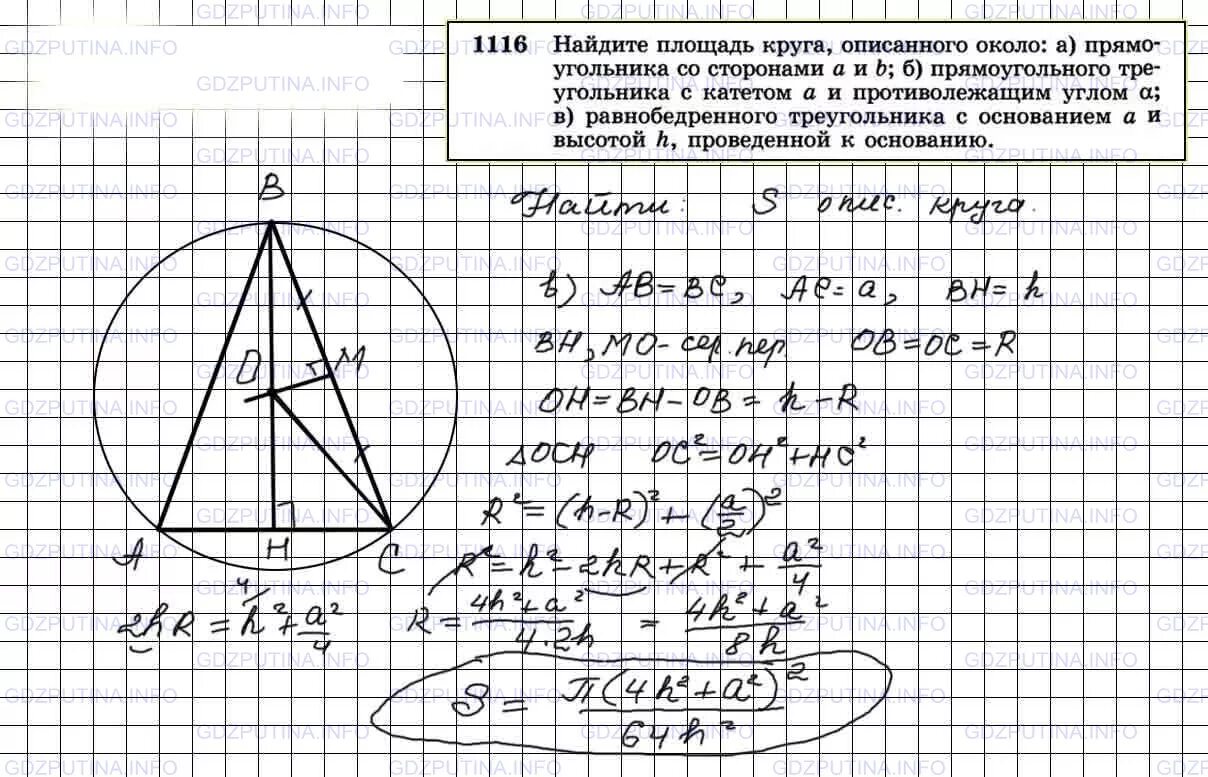 1116 Найдите площадь круга, описанного около: а) прямо-
угольника со сторонами a и b; б) прямоугольного тре-
угольника с катетом a и противолежащим углом α;
в) равнобедренного треугольника с основанием a и
высотой h, проведенной к основанию.
Найти: S опис. круга.
в) AB = BC, AC = a, BH = h
BH, MO - сер. пер. OB = OC = R
OH = BH - OB = h - R
△OCH OC² = OH² + HC²
R² = (h-R)² + (a/2)²
R² = h² - 2hR + R² + a²/4
2hR = h² + a²/4 R = (4h² + a²)/(4·2h) = (4h² + a²)/(8h)
S = π(4h² + a²)²/(64h²)
B
O M
A H C
4
GDZPUTINA.INFO